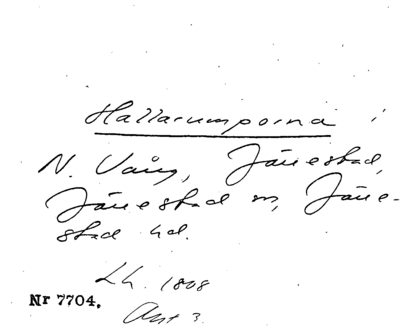 Hallarumporna i
N. Vång, Järrestad,
Järrestad sn, Järre-
stad hd.
Lh. 1808
Nr 7704.
Akt 3.